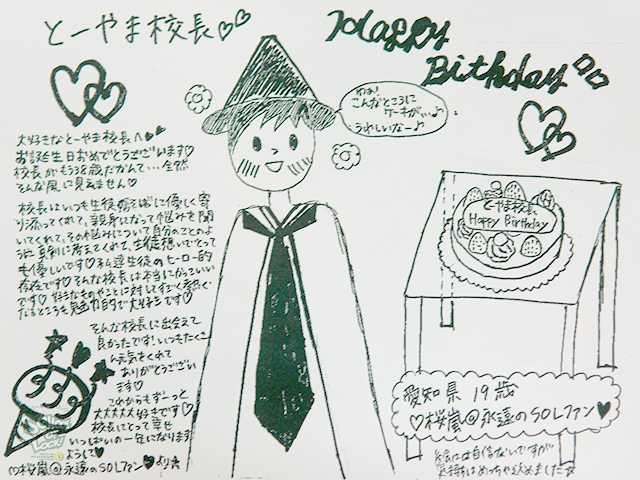 とーやま校長♡♡
Happy
Birthday
わぁ!
こんなところに
ケーキがぁぃ♪
うれしいなー♪
大好きなとーやま校長へ♥♥
お誕生日おめでとうございます♡
校長がもう38歳だなんて…全然
そんな風に見えません♡
校長はいつも生徒に優しく寄
り添ってくれて、親身になって悩みを聞
いてくれて、その悩みについて自分のことのよ
うに真剣に考えてくれて、生徒想いでとって
も優しいです♡私達生徒のヒーロー的
存在です♡そんな校長は本当にかっこいい
です♡好きなものやことに対してすごく熱く
なるところも魅力的で大好きです♡
そんな校長に出会えて
良かったです!いつもたくさ
ん元気をくれて
ありがとうござい
ます♡
これからもずーっと
大大大大大好きです♡
校長にとって幸せ
いっぱいの一年になります
ようにして♥
♡桜嵐@永遠のSOLファン♥より☆
とーやま校長、
Happy Birthday
愛知県 19歳
♡桜嵐@永遠のSOLファン♥
絵には自信ないですが
気持ちはめっちゃ込めました☆
SCHOOL OF LOCK!